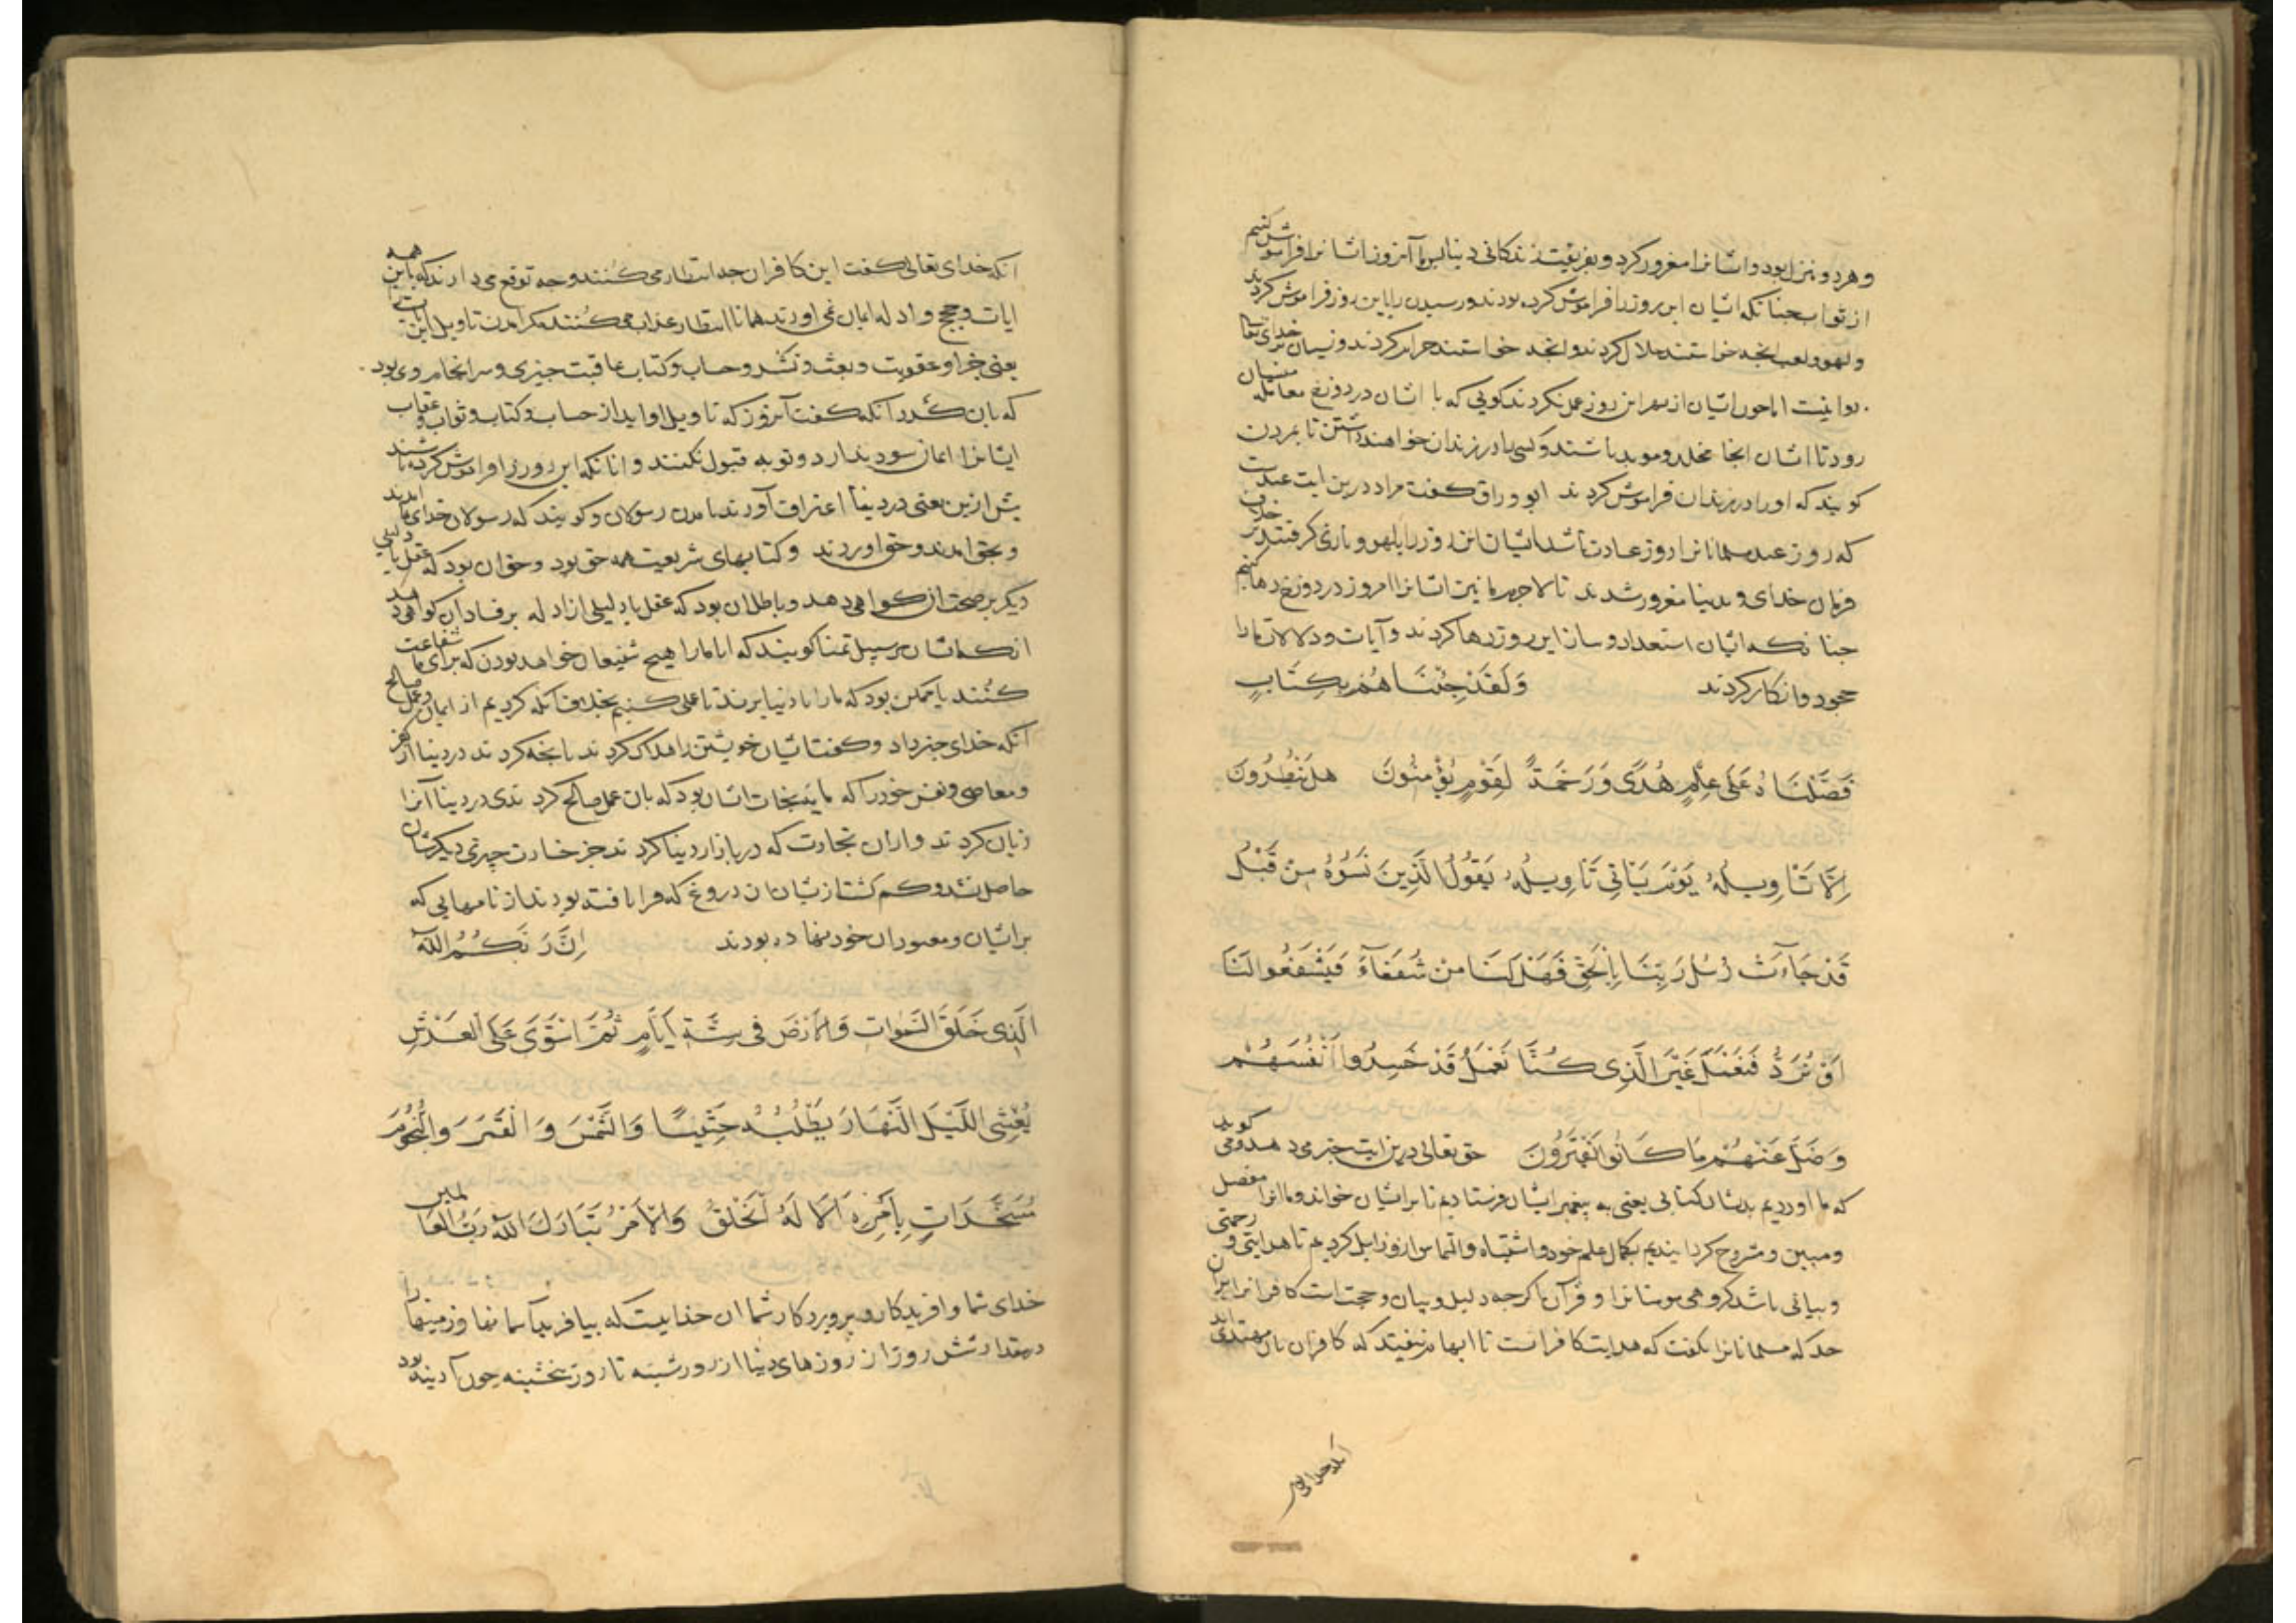 وهرد و نزل بود و اشانرا مغرور کرد و بفریفت زندکانی دنیا پس ما آنروز اشانرا فراموش کنیم
از ثواب جنانکه اشان این روز را فراموش کرده بودند و رسیدن را باین روز فراموش کردند
و لهو و لعب انجه خواستند حلال کردند و انجه خواستند حرام کردند و نسیان بر خدای تعالی
روا نیست اما جون اشان از بهر این روز عمل نکردند کویی که با اشان در دوزخ معامله منسیان
رود تا اشان انجا مخلد و موبد باشند و کسی را در زندان خواهند داشتن تا بمردن
کویند که او را در زندان فراموش کردند ابو وراق کفت مراد درین ایت عیدست
که روز عید مسلمانانرا روز عبادت باشد اشیان ان روز را بلهو و بازی کرفتند بر خلاف
فرمان خدای و بدنیا مغرور شدند تا لاجرم ما نیز اشانرا امروز در دوزخ رها کنیم
جنانکه اشیان استعداد و ساز این روز رها کردند و آیات و دلالات ما را
جحود و انکار کردند وَلَقَدْ جِئْنَاهُمْ بِكِتَابٍ
فَصَّلْنَاهُ عَلَى عِلْمٍ هُدًى وَرَحْمَةً لِقَوْمٍ يُؤْمِنُونَ هَلْ يَنْظُرُونَ
اِلَّا تَاْوِيلَهُ يَوْمَ يَاْتِى تَاْوِيلُهُ يَقُولُ الَّذِينَ نَسُوهُ مِنْ قَبْلُ
قَدْ جَآءَتْ رُسُلُ رَبِّنَا بِالْحَقِّ فَهَلْ لَنَا مِنْ شُفَعَآءَ فَيَشْفَعُوا لَنَا
اَوْ نُرَدُّ فَنَعْمَلَ غَيْرَ الَّذِى كُنَّا نَعْمَلُ قَدْ خَسِرُوا اَنْفُسَهُمْ
وَضَلَّ عَنْهُمْ مَا كَانُوا يَفْتَرُونَ حق تعالی درین ایت خبر می دهد و می کوید
که ما اوردیم بدشان کتابی یعنی به پیغمبر ایشان فرستادیم تا بر اشیان خواند و ما انرا مفصل
و مبین و مشروح کردانیدیم بکمال علم خود و اشتباه و التماس ازو زایل کردیم تا هدایتی و رحمتی
و بیانی باشد کروهی مومنانرا و قرآن اکرجه دلیل و بیان و حجت است کافرانرا
جدکه مسلمانانرا نکفت که هدایت کافرانست تا ابهام نیفیتد که کافران بان مهتدی اند
انکه خدای تعالی
انکه خدای تعالی کفت این کافران جه انتظار می کنند و جه توقع می دارند که با این همه
ایات و حجج و ادله ایمان نمی اورند همانا انتظار عذاب می کنند مکر امدن تاویل این
یعنی جزا و عقوبت و بعث و نشر و حساب و کتاب عاقبت جیزی و سر انجام وی بود
که بان کردد آنکه کفت آنروز که تاویل او اید از حساب و کتاب و ثواب و عقاب
ایشانرا ایمان سود ندارد و توبه قبول نکنند و انانکه این روز را فراموش کرده باشند
پیش ازین یعنی در دنیا اعتراف آورند بامدن رسولان و کویند که رسولان خدای ما امدند
و بحق امدند و حق اوردند و کتابهای شریعت همه حق بود و حق ان بود که عقل با دلیلی
دیکر بر صحت ان کواهی دهد و باطل ان بود که عقل یا دلیلی از ادله بر فساد ان کواهی دهد
انکه اشان بر سبیل تمنا کویند که ایا ما را هیج شفیعان خواهد بودن که برای ما شفاعت
کنند یا ممکن بود که ما را با دنیا برند تا عملی کنیم بخلاف انکه کردیم از ایمان و عمل صالح
آنکه خدای خبر داد و کفت اشیان خویشتن را هلاک کردند بانجه کردند در دنیا از کفر
و معاصی و نفس خود را که مایه نجات اشان بود که بان عمل صالح کردندی در دنیا آنرا
زیان کردند و از ان تجارت که در بازار دنیا کردند جز خسارت جیزی دیکرشان
حاصل نشد و کم کشت از شیان ان دروغ که فرا بافته بودند از نامهایی که
بر اشیان و معبودان خود نهاده بودند اِنَّ رَبَّكُمُ اللّٰهُ
الَّذِى خَلَقَ السَّمٰوَاتِ وَالْاَرْضَ فِى سِتَّةِ اَيَّامٍ ثُمَّ اسْتَوَى عَلَى الْعَرْشِ
يُغْشِى اللَّيْلَ النَّهَارَ يَطْلُبُهُ حَثِيثًا وَالشَّمْسَ وَالْقَمَرَ وَالنُّجُومَ
مُسَخَّرَاتٍ بِاَمْرِهِ اَلَا لَهُ الْخَلْقُ وَالْاَمْرُ تَبَارَكَ اللّٰهُ رَبُّ الْعَالَمِينَ
خدای شما و افریدکار و پروردکار شما ان خدایست که بیافرید آسمانها و زمینها را
در مقدار شش روز از روزهای دنیا از روز شنبه تا روز بنجشنبه جون آدینه بود